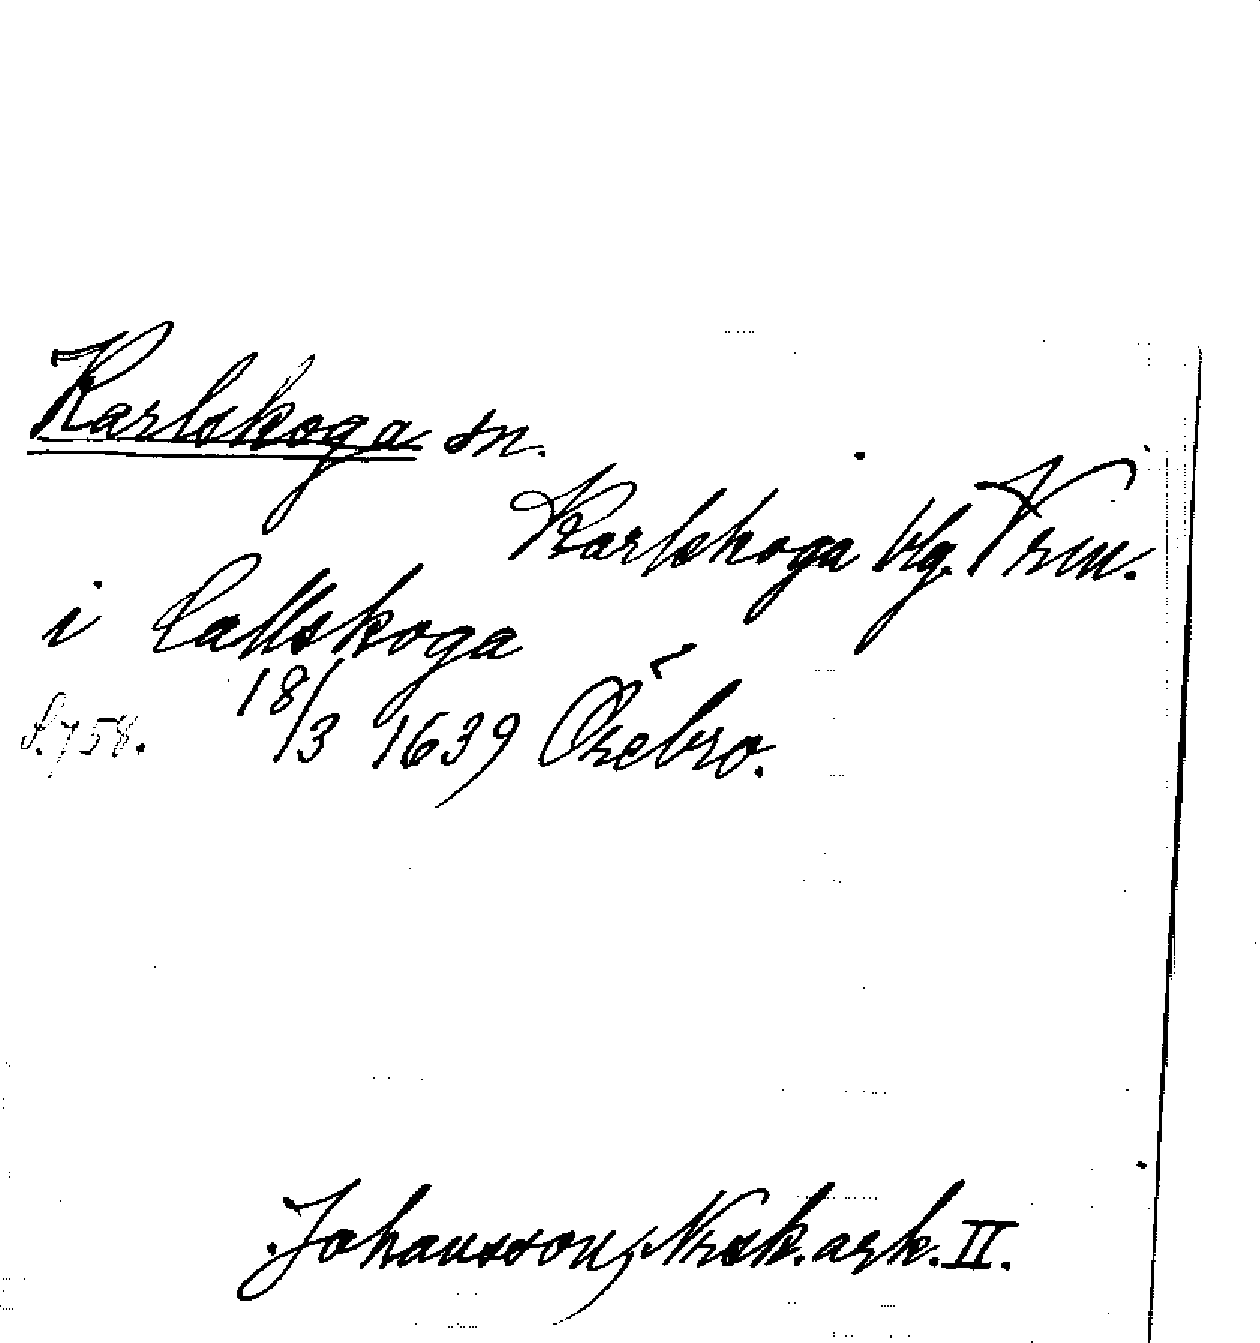 Karlskoga sn.
Karlskoga blg. Vrm.
i Callskoga
s. 758. 18/3 1639 Örebro.
Johansson, Norsk. ark. II.